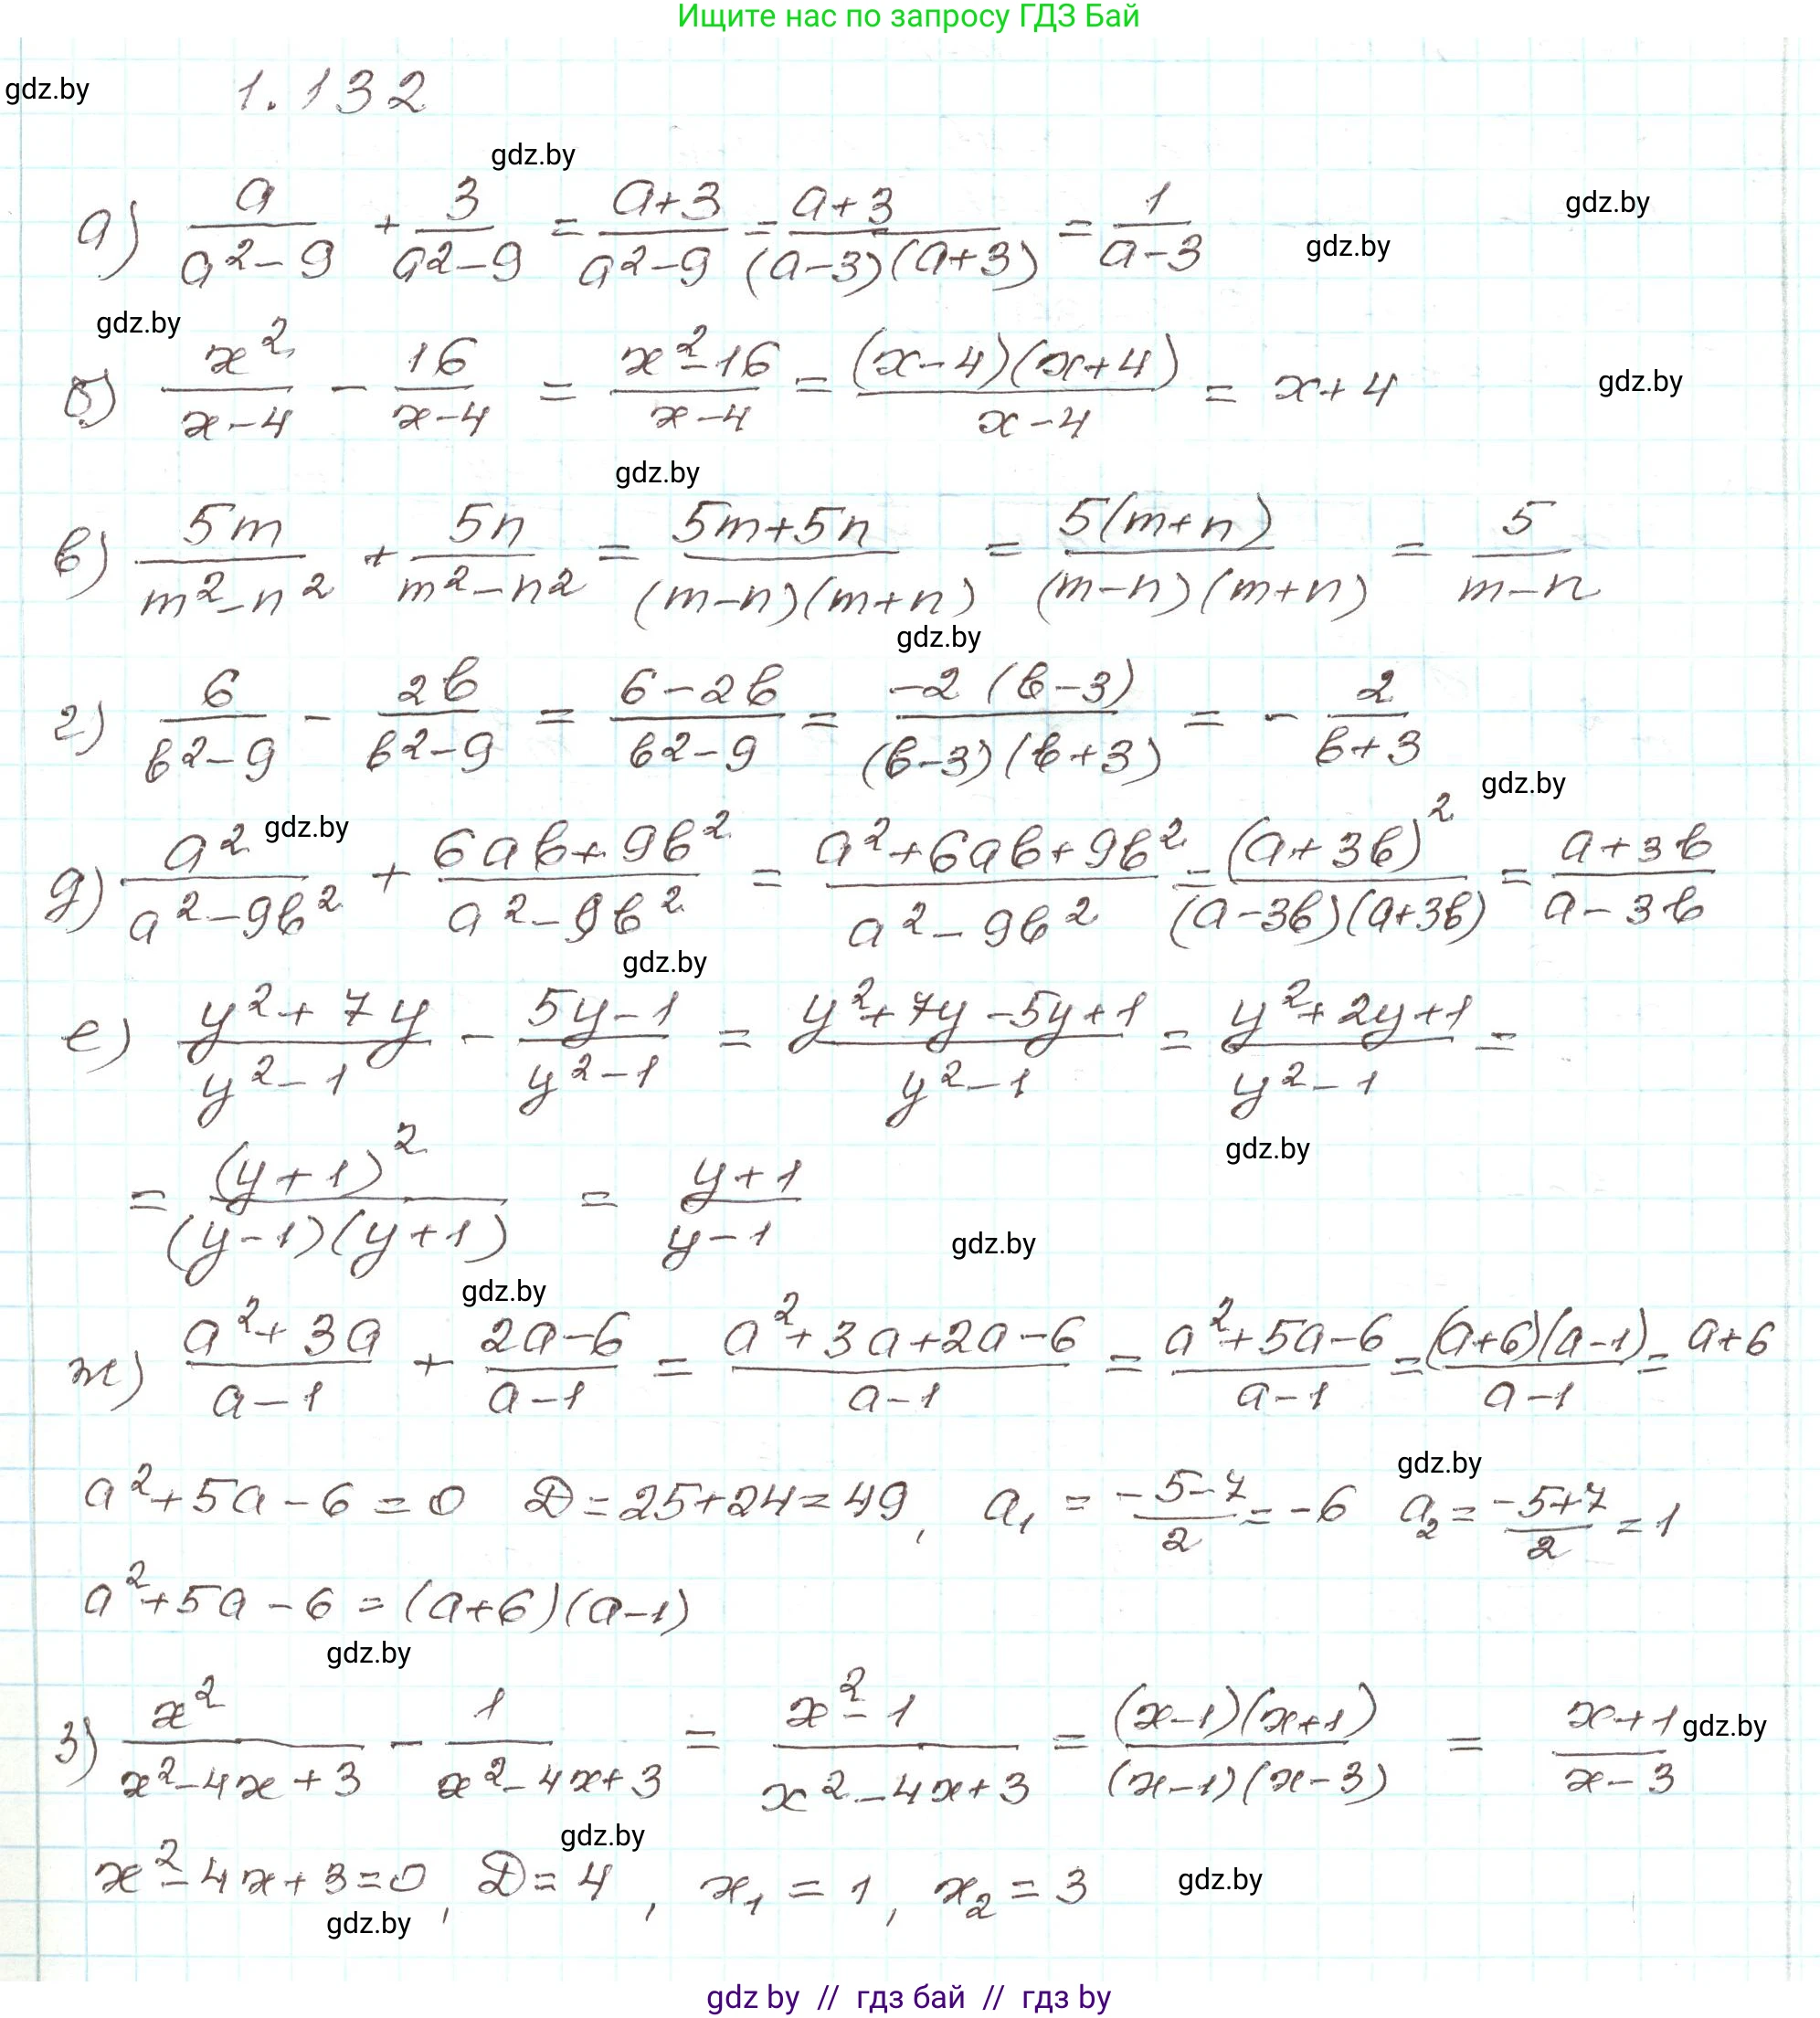 Ищите нас по запросу ГДЗ Бай
gdz.by
1.132
gdz.by
а) a/(a²-9) + 3/(a²-9) = (a+3)/(a²-9) = (a+3)/((a-3)(a+3)) = 1/(a-3)
gdz.by
gdz.by
gdz.by
б) x²/(x-4) - 16/(x-4) = (x²-16)/(x-4) = ((x-4)(x+4))/(x-4) = x+4
gdz.by
gdz.by
в) 5m/(m²-n²) + 5n/(m²-n²) = (5m+5n)/((m-n)(m+n)) = 5(m+n)/((m-n)(m+n)) = 5/(m-n)
gdz.by
г) 6/(b²-9) - 2b/(b²-9) = (6-2b)/(b²-9) = -2(b-3)/((b-3)(b+3)) = - 2/(b+3)
gdz.by
gdz.by
д) a²/(a²-9b²) + (6ab+9b²)/(a²-9b²) = (a²+6ab+9b²)/(a²-9b²) = (a+3b)²/((a-3b)(a+3b)) = (a+3b)/(a-3b)
gdz.by
е) (y²+7y)/(y²-1) - (5y-1)/(y²-1) = (y²+7y-5y+1)/(y²-1) = (y²+2y+1)/(y²-1) =
gdz.by
= (y+1)²/((y-1)(y+1)) = (y+1)/(y-1)
gdz.by
gdz.by
ж) (a²+3a)/(a-1) + (2a-6)/(a-1) = (a²+3a+2a-6)/(a-1) = (a²+5a-6)/(a-1) = ((a+6)(a-1))/(a-1) = a+6
gdz.by
a²+5a-6=0 D=25+24=49, a₁ = (-5-7)/2 = -6 a₂ = (-5+7)/2 = 1
a²+5a-6=(a+6)(a-1)
gdz.by
з) x²/(x²-4x+3) - 1/(x²-4x+3) = (x²-1)/(x²-4x+3) = ((x-1)(x+1))/((x-1)(x-3)) = (x+1)/(x-3)
gdz.by
gdz.by
x²-4x+3=0, D=4, x₁=1, x₂=3
gdz.by
gdz.by
gdz by // гдз бай // гдз by